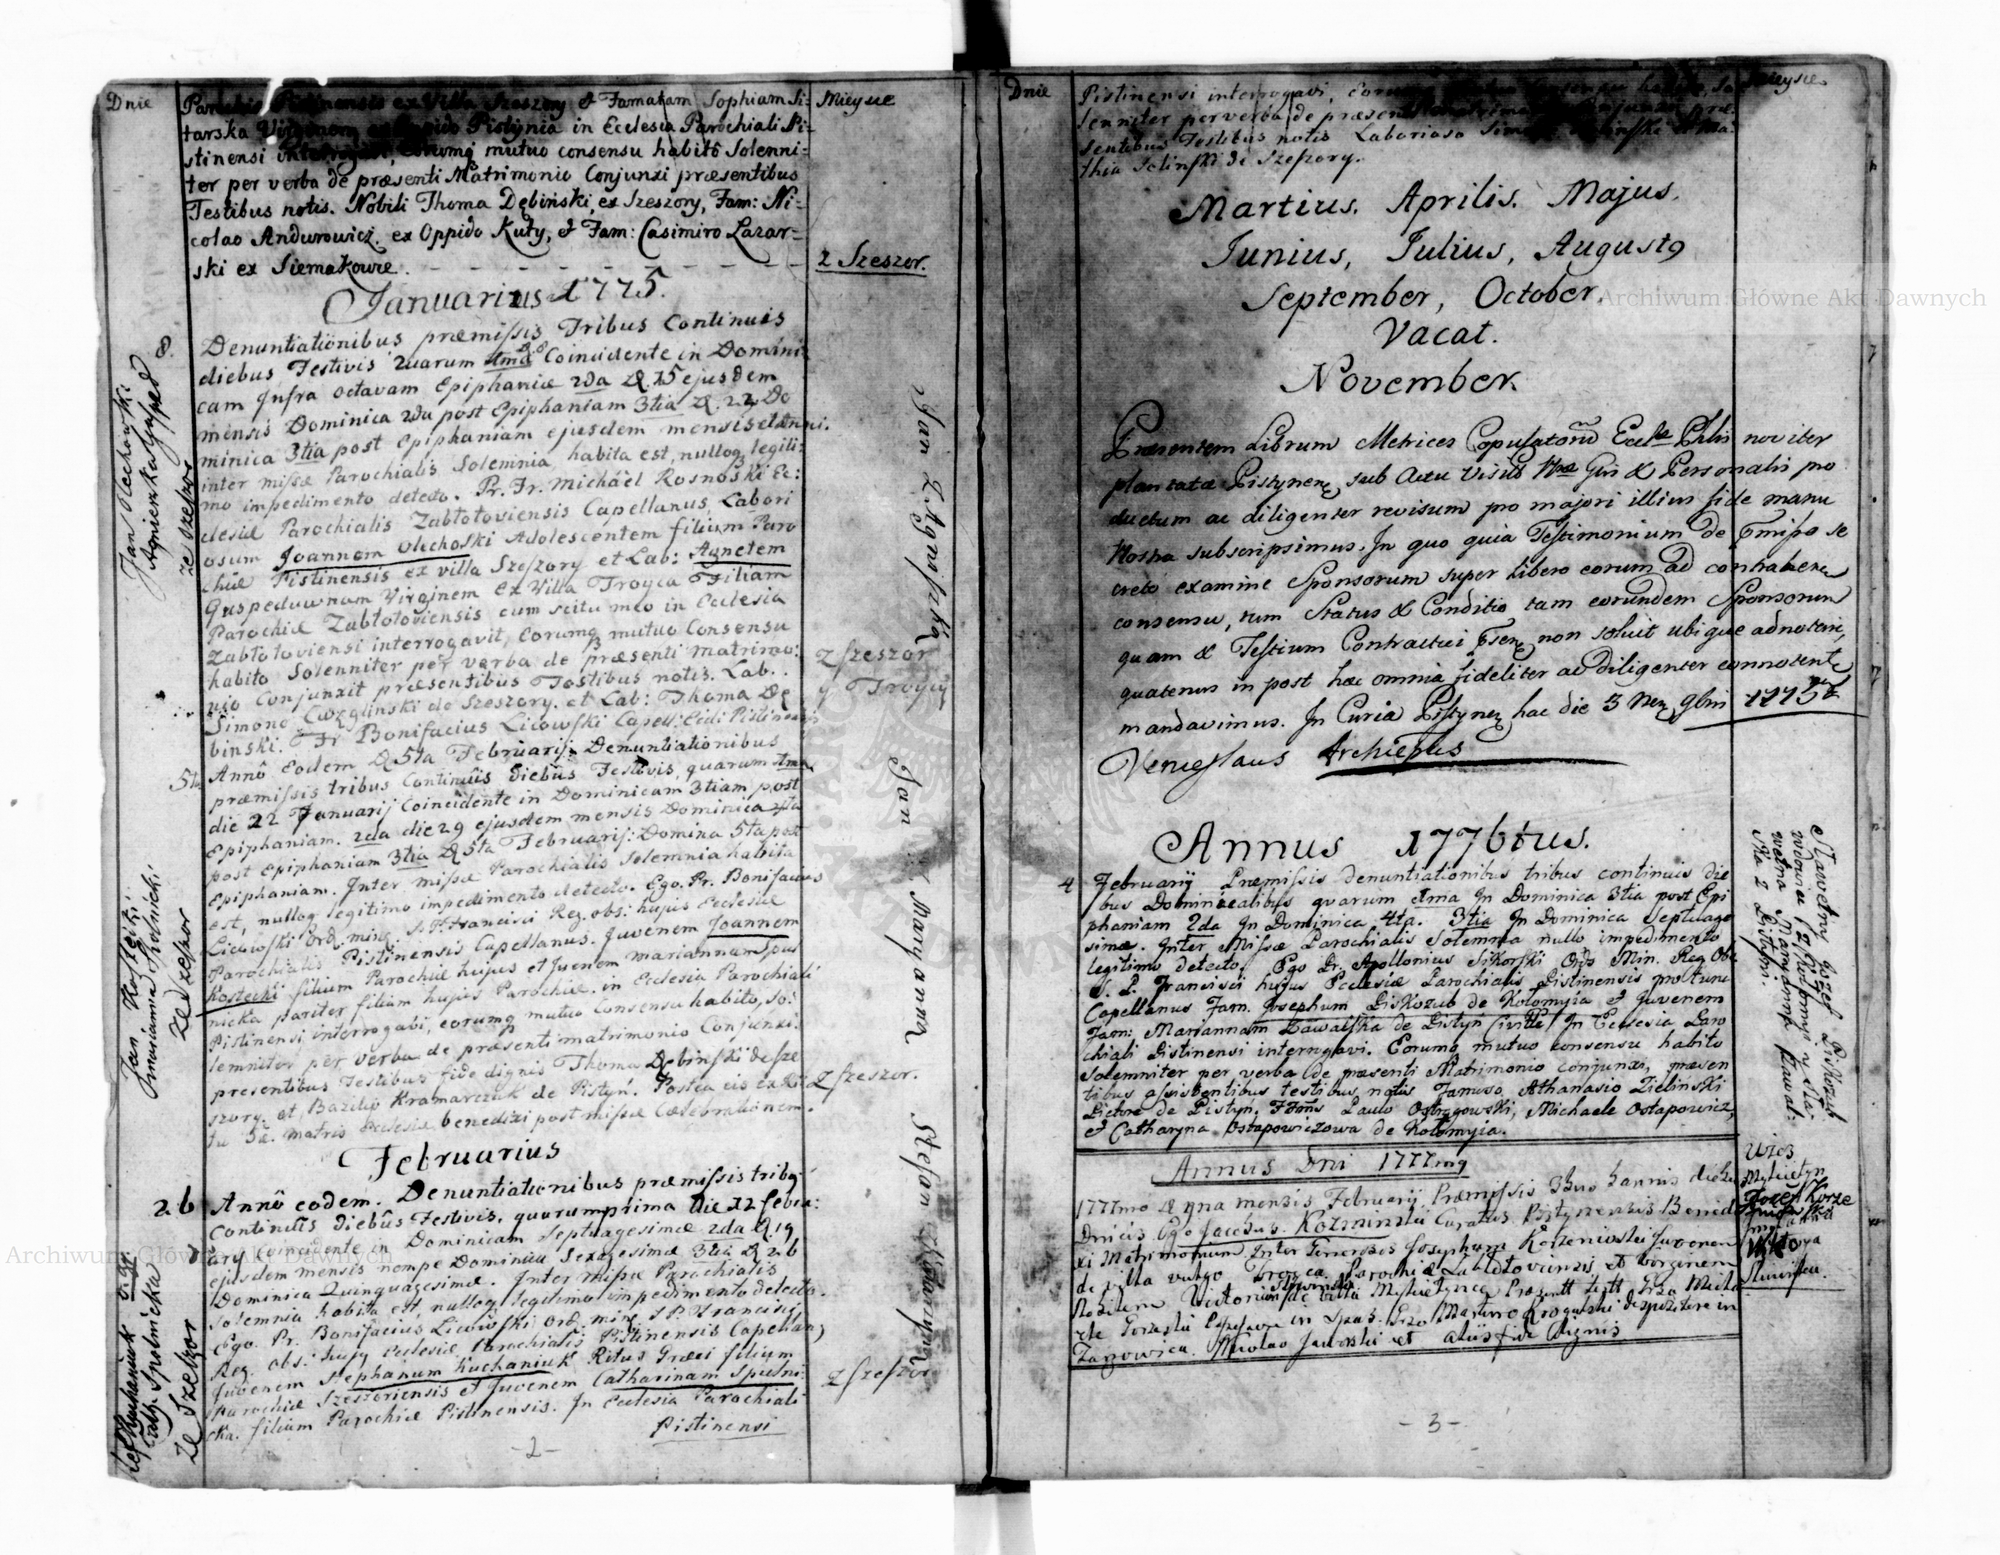 Dnie
Miejsce
Parochiæ Pistinensis ex Villa Szeszory et Famatam Sophiam Si-
tarska Virginem ex Oppido Pistynia in Ecclesia Parochiali Pi-
stinensi interrogavi, eorumq mutuo consensu habitô Solenni-
ter per verba de præsenti Matrimonio Conjunxi præsentibus
Testibus notis. Nobili Thoma Dębiński, ex Szeszory, Fam: Ni-
colao Andurowicz. ex Oppido Kuty, et Fam: Casimiro Lazar-
ski ex Siemakowce.
z Szeszor.
Januarius 1775.
8.
Denuntiationibus præmissis Tribus Continuis
diebus Festivis quarum 1ma d 8 Coincidente in Domini-
cam infra octavam Epiphaniæ 2da d. 15 ejusdem
mensis Dominica 2da post Epiphaniam 3tia d. 22 Do
minica 3tia post Epiphaniam ejusdem mensis et anni.
inter missæ Parochialis Solemnia, habita est, nulloq legiti-
mo impedimento detecto. Pr. Fr. Michaël Rosnoski Ec:
clesiæ Parochialis Zabłotoviensis Capellanus, Labori
osum Joannem Olechoski Adolescentem filium Paro
chiæ Pistinensis ex villa Szeszory et Lab: Agnetem
Guspeduwnam Virginem ex Villa Troyca Filiam
Parochiæ Zabłotoviensis cum scitu meo in Ecclesia
Zabłotoviensi interrogavit, Eorumq mutuo Consensu
habito Solenniter per verba de præsenti matrimo:
nio Conjunxit præsentibus Testibus notis. Lab.
Simone Cwzglinski de Szeszory. et Lab: Thoma Dę
binski. Fr Bonifacius Licowski Capell: Ecli Pistinensis
Jan Olechowski
Agnieszka Gusped
ze Szeszor
z Szeszor
y Troycy
Jan z Agniszką
5ta
Annô Eodem d 5ta Februarij: Denuntiationibus
præmissis tribus Continuis diebus Festivis, quarum 1ma
die 22 Januarij Coincidente in Dominicam 3tiam post
Epiphaniam. 2da die 29 ejusdem mensis Dominica 4ta
post Epiphaniam 3tia d 5ta Februarij: Domina 5ta post
Epiphaniam. Inter missæ Parochialis Solemnia habita
est, nulloq legitimo impedimento detecto. Ego Pr. Bonifacius
Licowski Ord: min: S. P. Francisci Reg. obs: hujus Ecclesiæ
Parochialis Pistinensis Capellanus. Juvenem Joannem
Kostecki filium Parochiæ hujus et Juenem mariannam Spus
nicka pariter filiam hujus Parochiæ. in Ecclesia Parochiali
Pistinensi interrogavi, eorumq mutuo Consensu habito, So:
lemniter per verba de præsenti matrimonio Conjunxi.
presentibus Testibus fide dignis Thoma Dębinski de Sze
szory. et Bazilijo Kramarczuk de Pistyń. Postea eis ex Ri
tu Sæ. matris Ecclesiæ benedixi post missæ Cælebrationem.
Jan Kostecki
Marianna Spolnicki
ze Szeszor
z Szeszor.
Jan z Maryanną
Februarius
26
Annô eodem. Denuntiationibus præmissis tribq
Continuis diebus Festivis, quarum prima die 12 febru:
arij coincidente in Dominicam Septuagesimæ 2da d. 19
ejusdem mensis nempe Dominica Sexagesimæ 3tia d 26
Dominica Quinquagesimæ. Inter missæ Parochialis
Solemnia habita est, nulloq legitimo impedimento detecto.
Ego Pr. Bonifacius Licowski Ord. min. S. P. Francisci,
Reg. obs: hujq Ecclesiæ Parochialis Pistinensis Capellanq
Juvenem Stephanum Kuchaniuk Ritus Græci filium
Parochiæ Szeszoriensis et Juvenem Catharinam Spulni-
cka. filiam Parochiæ Pistinensis. In Ecclesia Parochiali
Pistinensi
Stef Kuchaniuk
Cath: Spolnicka
ze Szeszor
z Szeszor
Stefan z Katarzyną
- 2 -
Dnie
Miejsce
Pistinensi interrogavi, eorumq mutuo consensu habito, So
lenniter per verba de præsenti matrimonio Conjunxi præ-
sentibus Testibus notis Laborioso Simone Zelinski et Ma-
thia Selinski de Szeszory.
Martius. Aprilis. Majus.
Junius, Julius, Augustq
September, October.
Vacat.
November.
Præsentem Librum Metrices Copulatorũ Eccl Phlis noviter
plantatæ Pistynen, sub Actu Visitis Nræ Gñ & Personalis pro
ductum ac diligenter revisum pro majori illius fide manu
Nostra subscripsimus. In quo quia Testimonium de præmisso se
creto examine Sponsorum super libero eorum ad contrahen
consensu, tum Status & Conditio tam eorundem Sponsorum
quam & Testium Contractui non soluit ubique adnotari,
quatenus in post hæc omnia fideliter ac diligenter connotent
mandavimus. In Curia Pistynen hac die 3 Men 9bris 1775
Venceslaus Archiepus
Annus 1776tus.
4
Februarij Præmissis denuntiationibus tribus continuis die
bus Dominicalibus quarum 1ma In Dominica 3tia post Epi
phaniam 2da In Dominica 4ta. 3tia In Dominica Septuage
simæ. Inter Missæ Parochialis Solemnia nullo impedimento
legitimo detecto, Ego Pr. Apollonius Sikorski Ord Min. Reg Obs
S. P. Francisci hujus Ecclesiæ Parochialis Pistinensis pro tunc
Capellanus Fam. Josephum Piskozub de Kołomyia et Juvenem
Fam: Mariannam Zawalska de Pistyń Civitte, In Ecclesia Paro
chiali Pistinensi interrogavi. Eorumq mutuo consensu habito
Solemniter per verba de præsenti Matrimonio conjunxi, præsen
tibus assistentibus testibus notis Famoso, Athanasio Zieliński
Pictore de Pistyń, Paulo Ostrogowski, Michaele Ostapowicz,
et Catharyna Ostapowiczowa de Kołomyia.
Sławetny Jozef Piskozub
wdowiec z Kołomyi y Sła-
wetna Maryanna Zawal-
ska z Pistyni.
Annus Dni 1777mq
1777mo d 9na mensis Februarij. Præmissis 3bus bannis diebus
Dnicis Ego Jacobus Kozminski Curatus Pistynensis Bened
xi Matrimonium Inter Generosos Josephum Korzeniowski Juvenem
de villa vulgo Troyca. Parochiæ Zabłotoviensis et virginem
Nobilem Victoriam Słowinska de villa Mykietynce Præsentt testt
Zarzowica. Nicolao Jaworski et aliis fide dignis
Wieś
Mykietyn
Jozef Korze
Wiktorya
Słowińska.
- 3 -
Archiwum Główne Akt Dawnych
Archiwum Główne Akt Dawnych